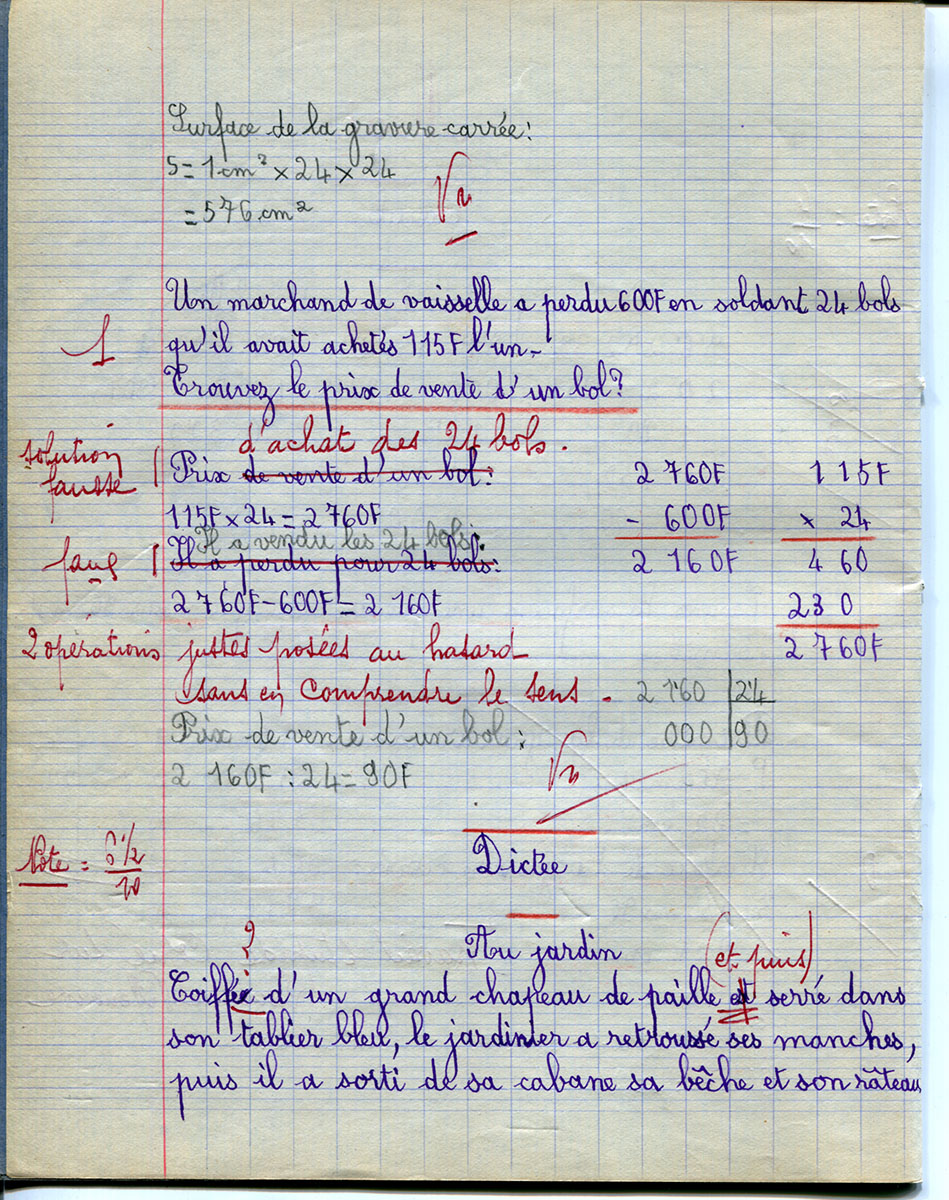 Surface de la gravure carrée:
S = 1 cm² × 24 × 24
= 576 cm²
Vu
Un marchand de vaisselle a perdu 600F en soldant 24 bols
1 qu'il avait achetés 115F l'un.
Trouvez le prix de vente d'un bol?
d'achat des 24 bols.
solution fausse
Prix de vente d'un bol: 2 760F 115F
115F × 24 = 2 760F - 600F × 24
Il a vendu les 24 bols:
faux Il a perdu pour 24 bols: 2 160F 460
2 760F - 600F = 2 160F 230
2 opérations justes posées au hasard 2 760F
sans en comprendre le sens. 2 160 24
Prix de vente d'un bol: 000 90
2 160F : 24 = 90F Vu
Note = 6 1/2 / 10
Dictée
? Au jardin (et puis)
Coiffé d'un grand chapeau de paille et serré dans
son tablier bleu, le jardinier a retroussé ses manches,
puis il a sorti de sa cabane sa bêche et son râteau